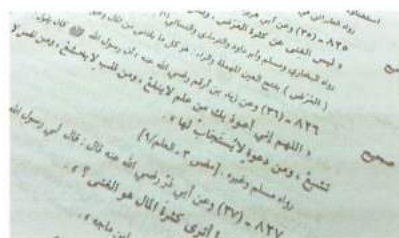 رواه الطبراني في
٨٢٥ - (٣٥) وعن أبي هريرة
« ليس الغنى عن كثرة العَرَض ، ولكن
رواه البخاري ومسلم وأبو داود والترمذي والنسائي
( العَرَض ) بفتح العين المهملة والراء : هو كل ما يقتنى من المال وغيره
صحيح
٨٢٦ - (٣٦) وعن زيد بن أرقم رضي الله عنه ؛ أن رسول الله ﷺ كان يقول :
« اللهم إني أعوذ بك من علمٍ لا ينفعُ ، ومن قلبٍ لا يخشعُ ، ومن نفسٍ لا
تشبعُ ، ومن دعوةٍ لا يُستجابُ لها » .
رواه مسلم وغيره . [مضى ٣ - العلم/٩]
صحيح
٨٢٧ - (٣٧) وعن أبي ذرٍّ رضي الله عنه قال : قال لي رسول الله
أترى كثرةَ المال هو الغنى ؟ » .
ابن ماجه